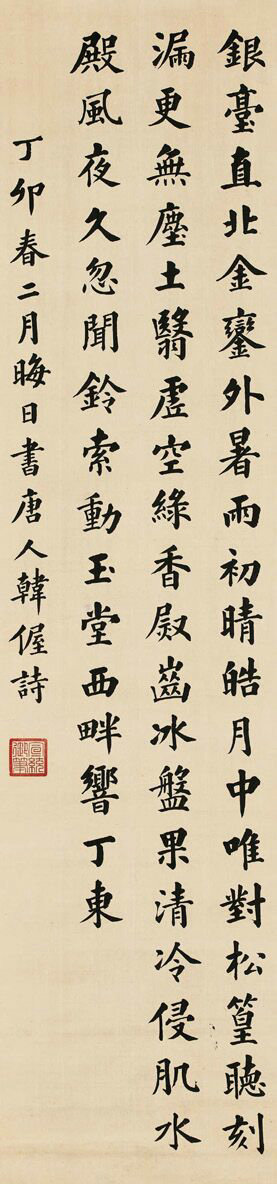 銀臺直北金鑾外暑雨初晴皓月中唯對松篁聽刻
漏更無塵土翳虛空綠香齒冰盤果清冷侵肌水
殿風夜久忽聞鈴索動玉堂西畔響丁東
丁卯春二月晦日書唐人韓偓詩
宣統御筆